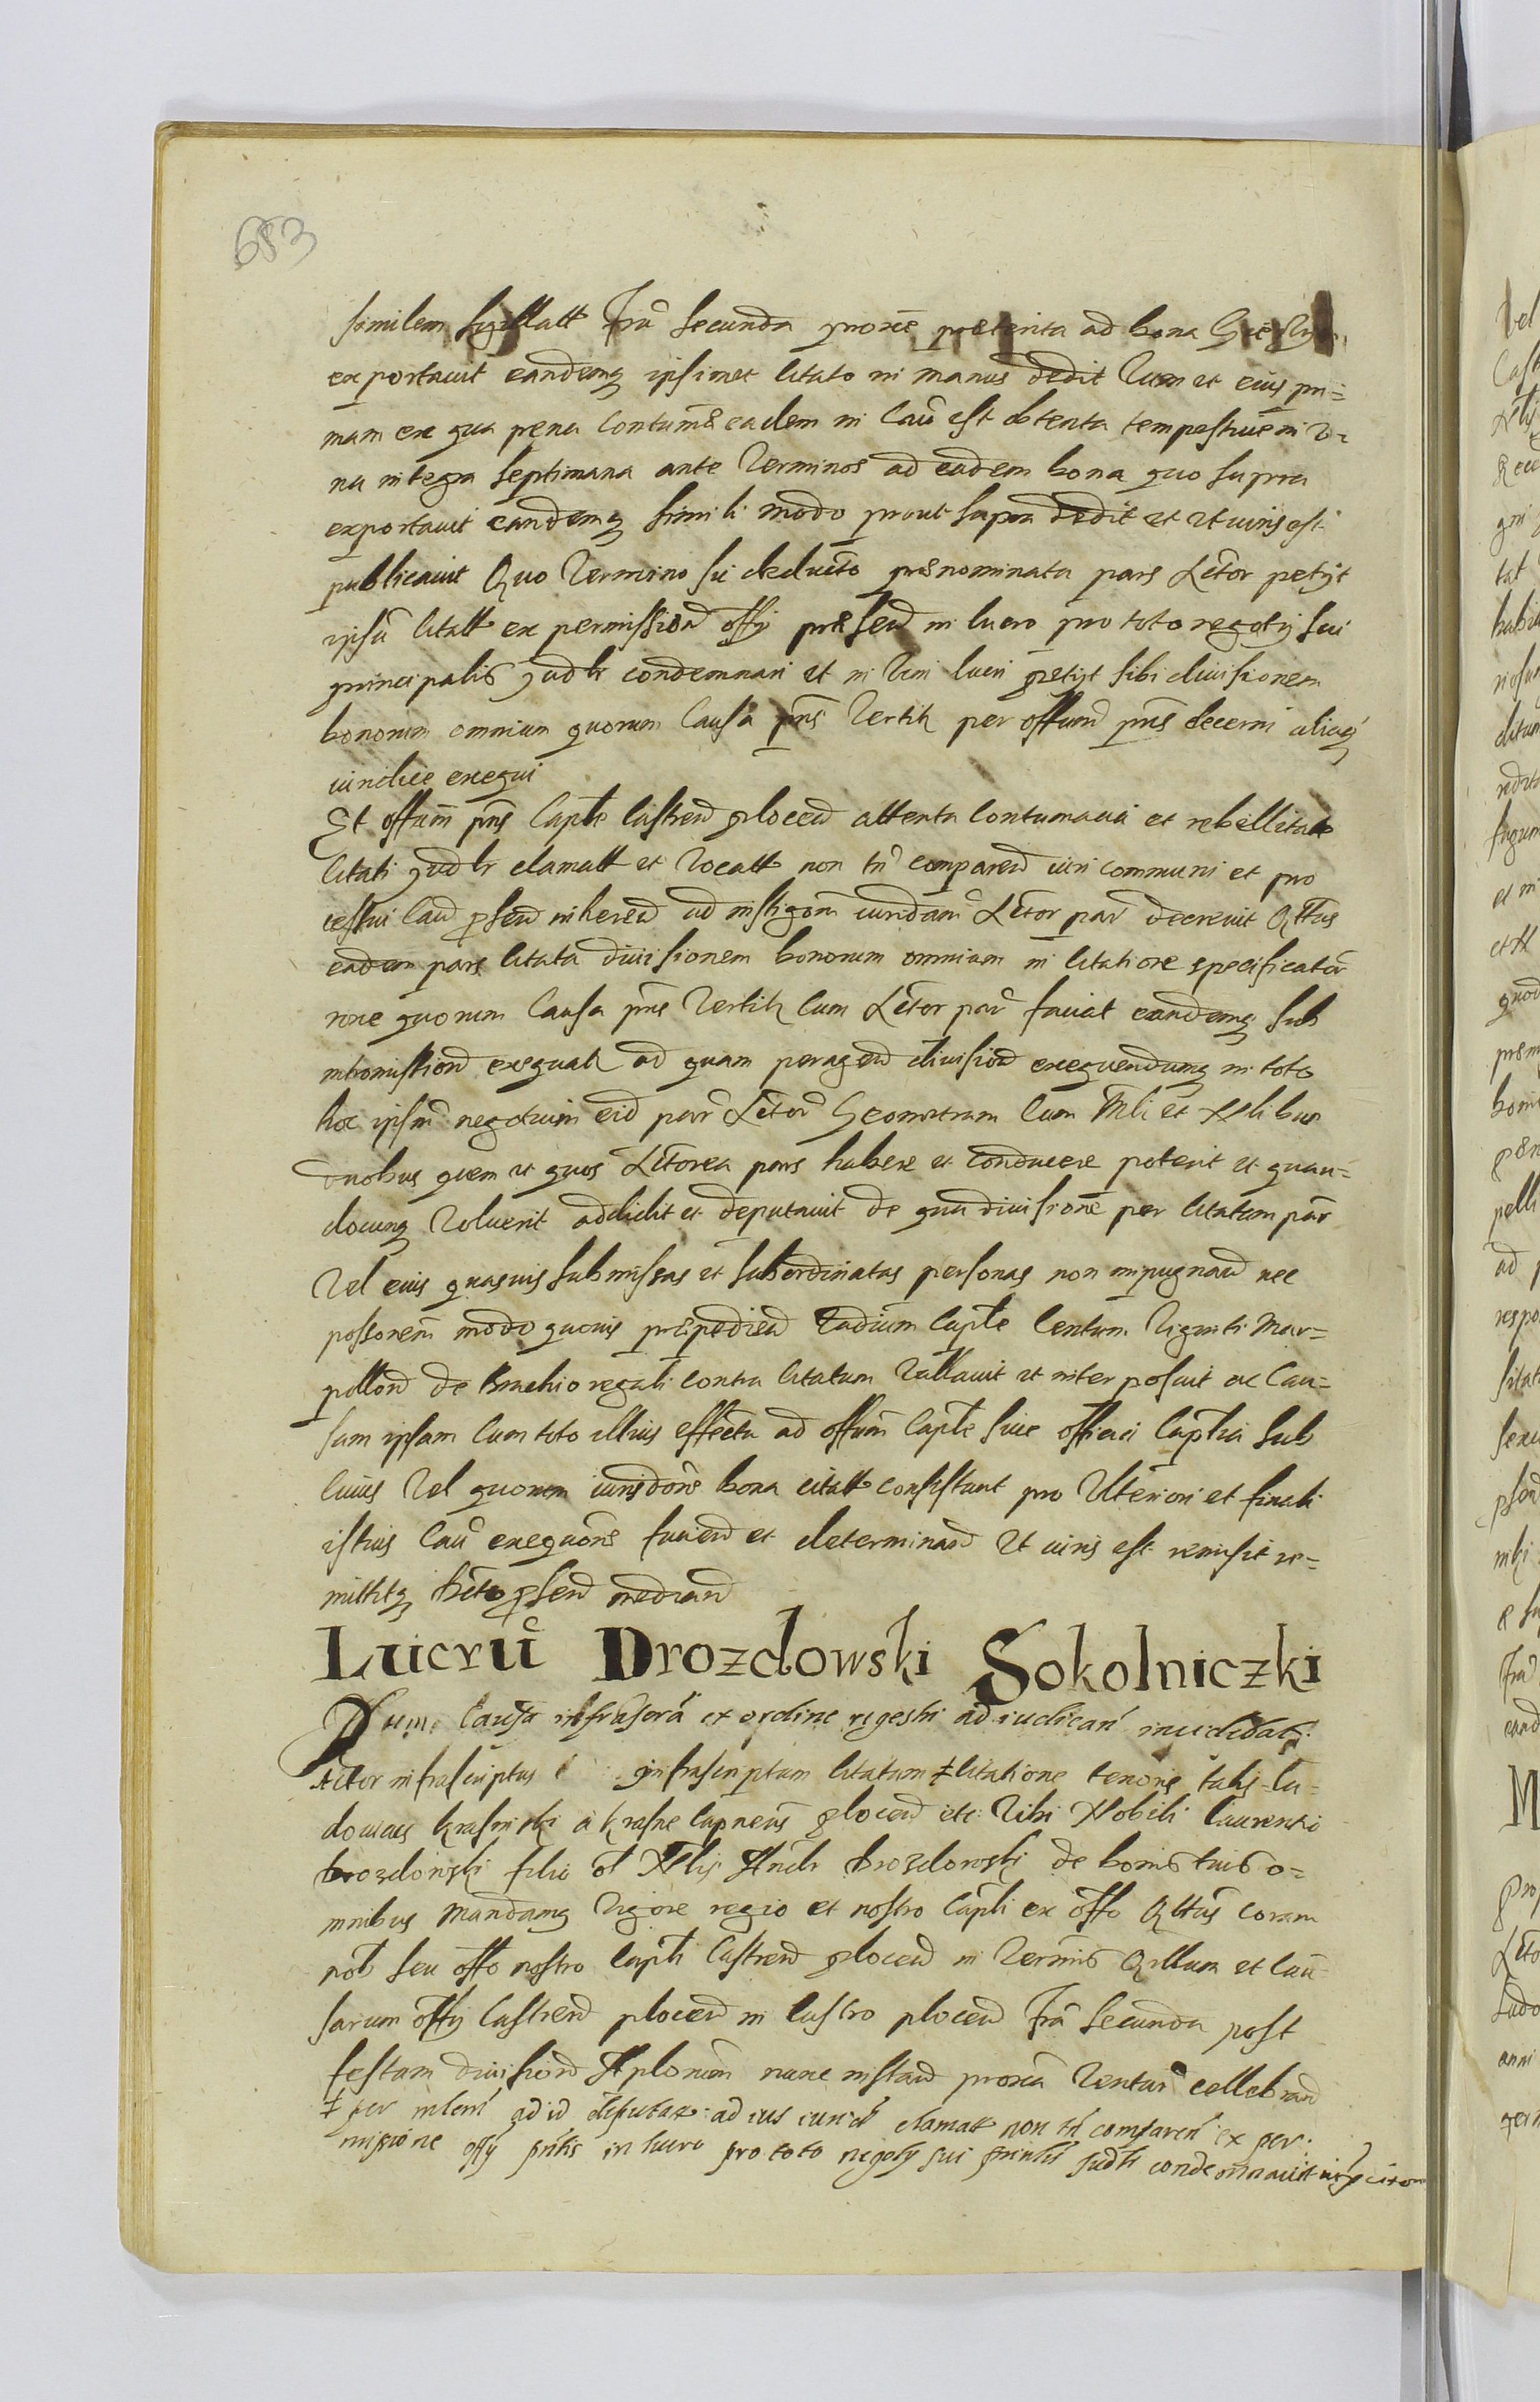 683
similem sigillatt Frã secunda proxe preterita ad bona
exportavit eandemq ipsimet Citato in manus dedit Tum et eius pri=
mam ex qua pena Contumã eadem in Caũ est obtenta tempestive in v=
na integra septimana ante Terminos ad eadem bona quo supra
exportavit eandemq simili modo prout supra dedit et ut iuris est
publicavit Quo Termino sic deducto prænominata pars Actor petijt
ipsũ Citatt ex permission offij præsen in lucro pro toto negotij sui
principalis Judlr condemnari et in vim lucri petijt sibi divisionem
bonorum omnium quorum Causa pñs Vertitr per offium pñs decerni aliaq
iuridice exequi
Et offium pñs Capte Castren plocen attenta Contumacia et rebellitate
Citati Judlr clamatt et vocatt non tñ comparen iuri communi et pro
cessui Cauῦ psen inheren ad instigonem iuridam Actor par decrevit Qttus
eadem pars Citata divisionem bonorum omnium in Citatione specificator
nec quorum Causa pñs Vertitr Cum Actor par faciat eandemq sub
intromission exequatr ad quam peragen division exequendumq in toto
hoc ipsũ negotium eid par Actor Geometram Cum Mli et Nlibus
duobus quem et quos Actorea pars habere et conducere poterit et quan=
docunq voluerit addidit et deputavit de qua divisione per Citatam par
Vel eius quasvis submissas et subordinatas personas non impugnan nec
possonem modo quovis præpedien Vadium Capte Centum Viginti Mar=
pollon de Brachio regali contra Citatum Vallavit et interposuit ac Cau=
sam ipsam Cum toto illius effectu ad offium Capte sive officia Captia sub
Cuius Vel quorum iurisdone bona citatt consistunt pro Ulteriori et finali
istius Caũ exequone facien et determinan Ut iuris est remisit re=
mittitq Decto psen median
Lucrũ Drozdowski Sokolniczki
Dum Causa infrascra ex ordine regestri ad iudican incidebat
Actor infrascriptus infrascriptum Citatum ‡ Citatione tenoris talis Lu=
dovicus Krasinski a Krasne Capneus plocen etc Tibi Nobili Laurentio
Drozdowski filio ol Nlis Andr Drozdowski de bonis tuis o=
mnibus Mandamq Vigore regio et nostro Capli ex offo Qttus coram
nob seu offo nostro Capli Castren plocen in Terminis Qrllum et Cau=
sarum offij Castren plocen in Castro plocen Frã secunda post
festum division Aplorum nunc instan proxã Ventur cellebran
‡ per mlem ad id deputatt ad ius iurid clamatt non tñ comparen ex per
misione offij pñtis in lucro pro toto negotij sui prinlis Judlr condemnavit